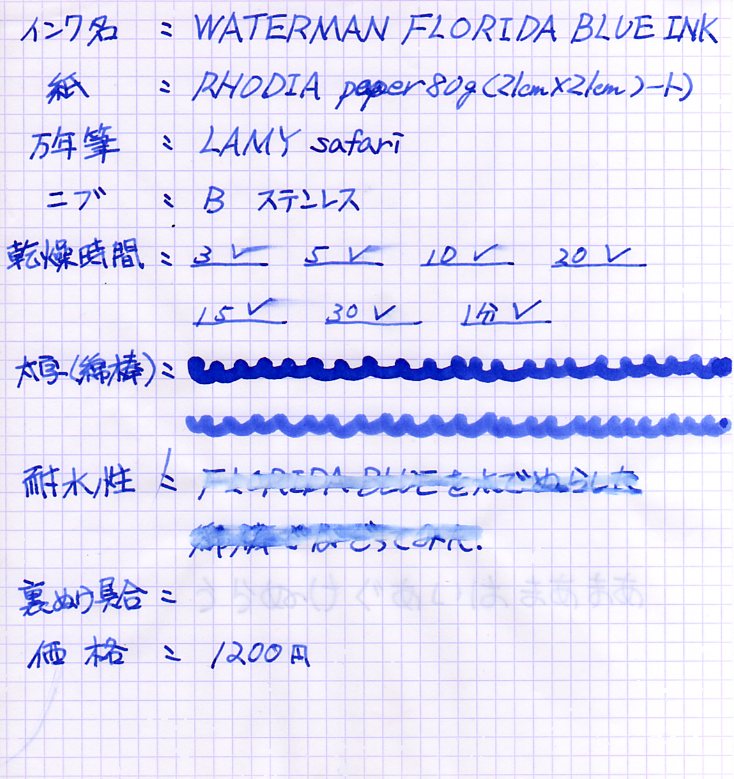 インク名 : WATERMAN FLORIDA BLUE INK
紙 : RHODIA paper 80g(21cm×21cmシート)
万年筆 : LAMY safari
ニブ : B ステンレス
乾燥時間 : 3✓ 5✓ 10✓ 20✓
15✓ 30✓ 1分✓
太字(綿棒) :
耐水性 : FLORIDA BLUEを水でぬらした
綿棒でなぞってみた.
裏ぬけ具合 :
価格 : 1200円